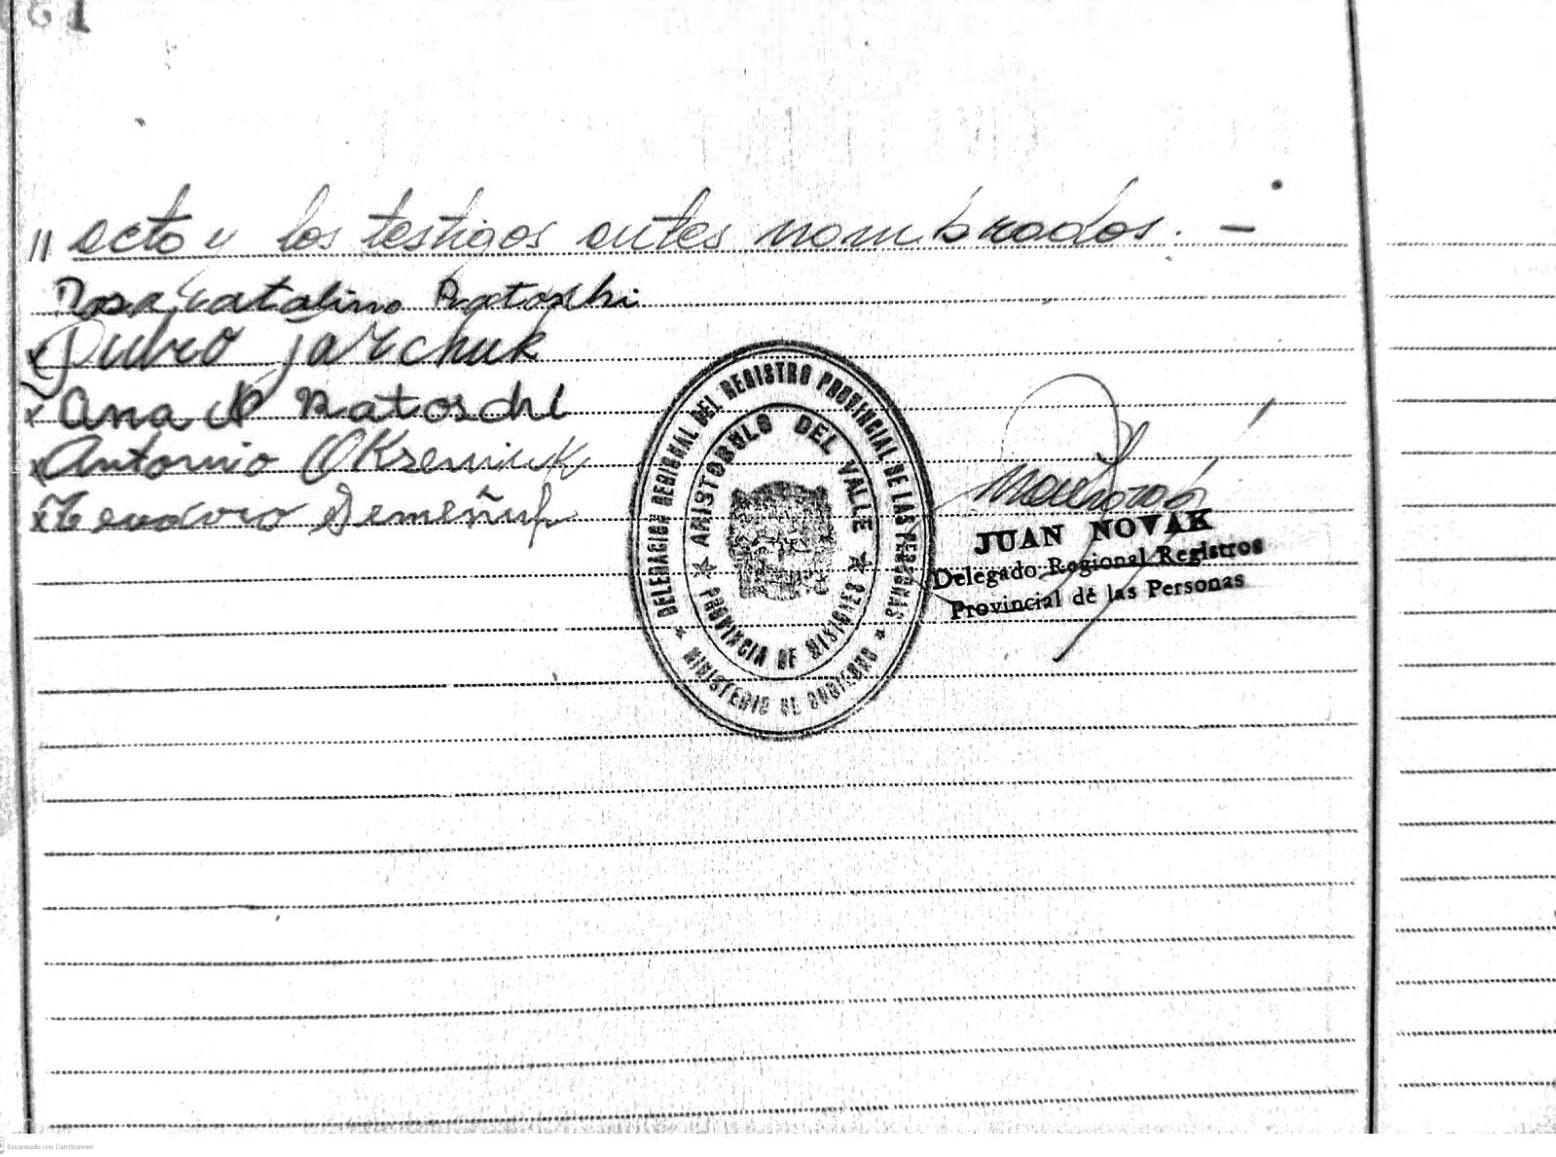 " acto y los testigos antes nombrados. —
Rosa Catalino Ratoski
x Pedro Jarchuk
x Ana N Ratoschi
x Antonio Okseniuk
x Teodoro Semeñuk
DELEGACION REGIONAL DEL REGISTRO PROVINCIAL DE LAS PERSONAS
★ MINISTERIO DE GOBIERNO ★
★ ARISTOBULO DEL VALLE ★
PROVINCIA DE MISIONES
JUAN NOVAK
Delegado Regional Registros
Provincial de las Personas
Escaneado con CamScanner